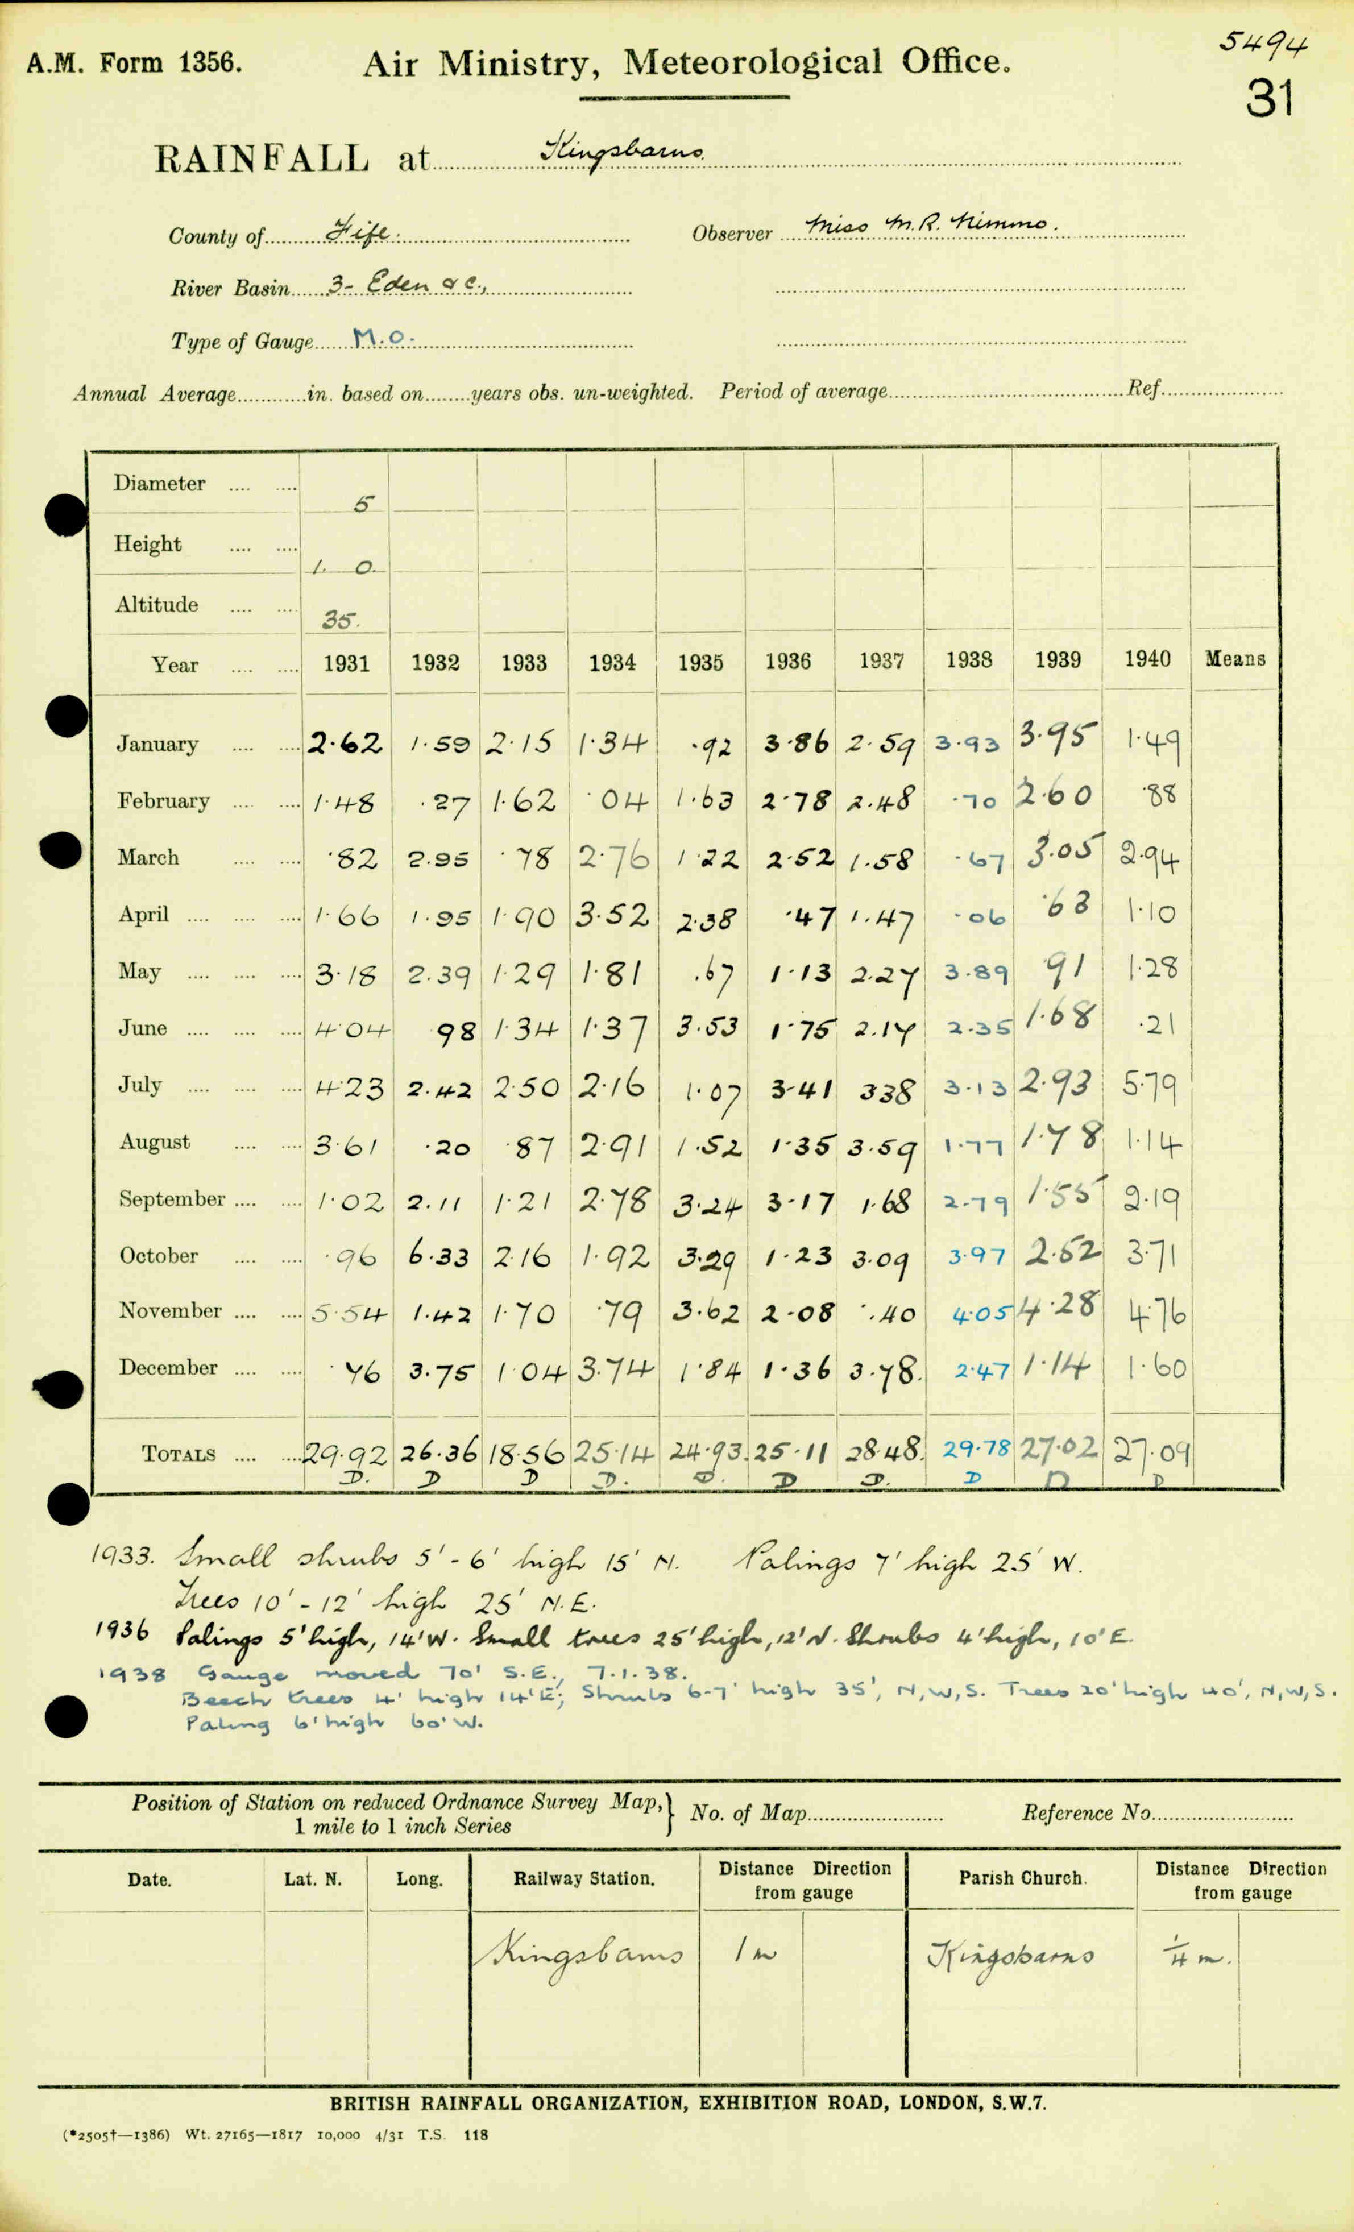 5494
A.M. Form 1356. Air Ministry, Meteorological Office.
31
RAINFALL at Kingsbarns.
County of Fife. Observer Miss M.R. Nimmo.
River Basin 3- Eden &c.,
Type of Gauge M.O.
Annual Average............in. based on........years obs. un-weighted. Period of average........................................Ref.....................
Diameter .... .... 5
Height .... .... 1. 0.
Altitude .... .... 35.
Year .... .... 1931 1932 1933 1934 1935 1936 1937 1938 1939 1940 Means
January .... .... 2·62 1·59 2·15 1·34 ·92 3·86 2·59 3·93 3·95 1·49
February .... .... 1·48 ·27 1·62 ·04 1·63 2·78 2·48 ·70 2·60 ·88
March .... .... ·82 2·95 ·78 2·76 1·22 2·52 1·58 ·67 3·05 2·94
April .... .... .... 1·66 1·95 1·90 3·52 2·38 ·47 1·47 ·06 ·63 1·10
May .... .... .... 3·18 2·39 1·29 1·81 ·67 1·13 2·27 3·89 91 1·28
June .... .... .... 4·04 98 1·34 1·37 3·53 1·75 2·17 2·35 1·68 ·21
July .... .... .... 4·23 2·42 2·50 2·16 1·07 3·41 338 3·13 2·93 5·79
August .... .... 3·61 ·20 ·87 2·91 1·52 1·35 3·59 1·77 1·78 1·14
September .... .... 1·02 2·11 1·21 2·78 3·24 3·17 1·68 2·79 1·55 2·19
October .... .... ·96 6·33 2·16 1·92 3·29 1·23 3·09 3·97 2·52 3·71
November .... .... 5·54 1·42 1·70 ·79 3·62 2·08 ·40 4·05 4·28 4·76
December .... .... ·76 3·75 1·04 3·74 1·84 1·36 3·78. 2·47 1·14 1·60
TOTALS .... .... 29·92 26·36 18·56 25·14 24·93. 25·11 28·48. 29·78 27·02 27·09
D. D D D. D. D D. D D D
1933. Small shrubs 5' - 6' high 15' N. Palings 7' high 25' W.
Trees 10' - 12' high 25' N.E.
1936 Palings 5' high, 14' W. Small trees 25' high, 12' N. Shrubs 4' high, 10' E.
1938 Gauge moved 70' S.E., 7.1.38.
Beech trees 4' high 14' E; Shrubs 6-7' high 35', N,W,S. Trees 20' high 40', N,W,S.
Paling 6' high 60' W.
Position of Station on reduced Ordnance Survey Map,} No. of Map........................ Reference No.........................
1 mile to 1 inch Series
Date. Lat. N. Long. Railway Station. Distance Direction from gauge Parish Church. Distance Direction from gauge
Kingsbarns 1 m Kingsbarns ¼ m.
BRITISH RAINFALL ORGANIZATION, EXHIBITION ROAD, LONDON, S.W.7.
(*2505†—1386) Wt. 27165—1817 10,000 4/31 T.S. 118